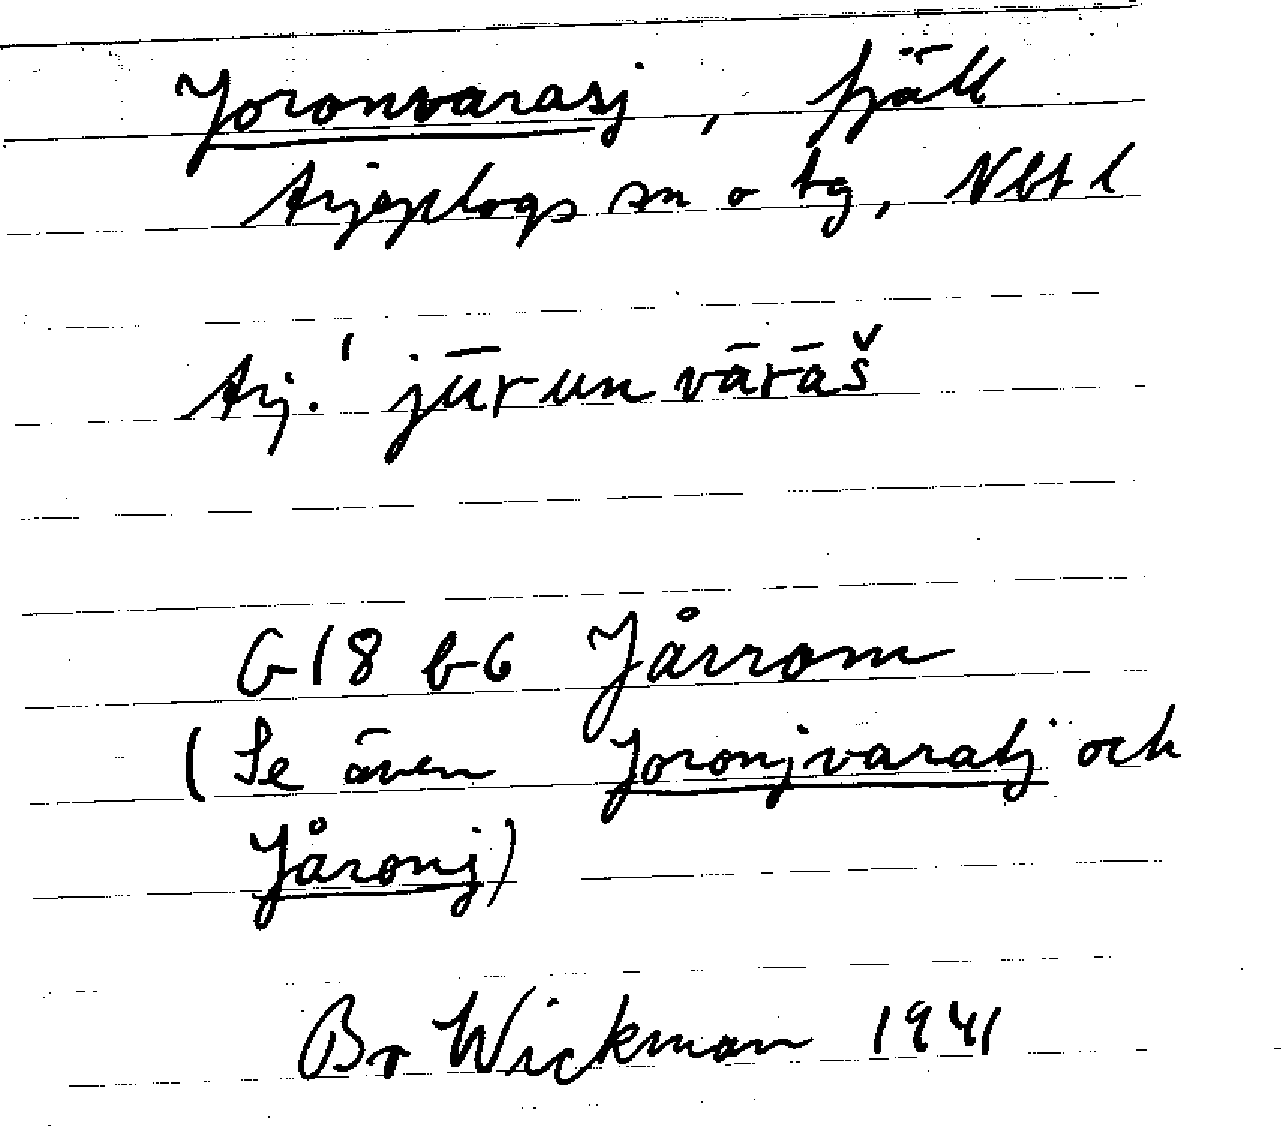 Joronvarasj, fjäll
Arjeplogs sn o tg, Nbt l
Arj. ˈjūrun vārāš
G18 b6 Jårrom
(Se även Joronjvaratj och
Jåronj)
Bo Wickman 1941